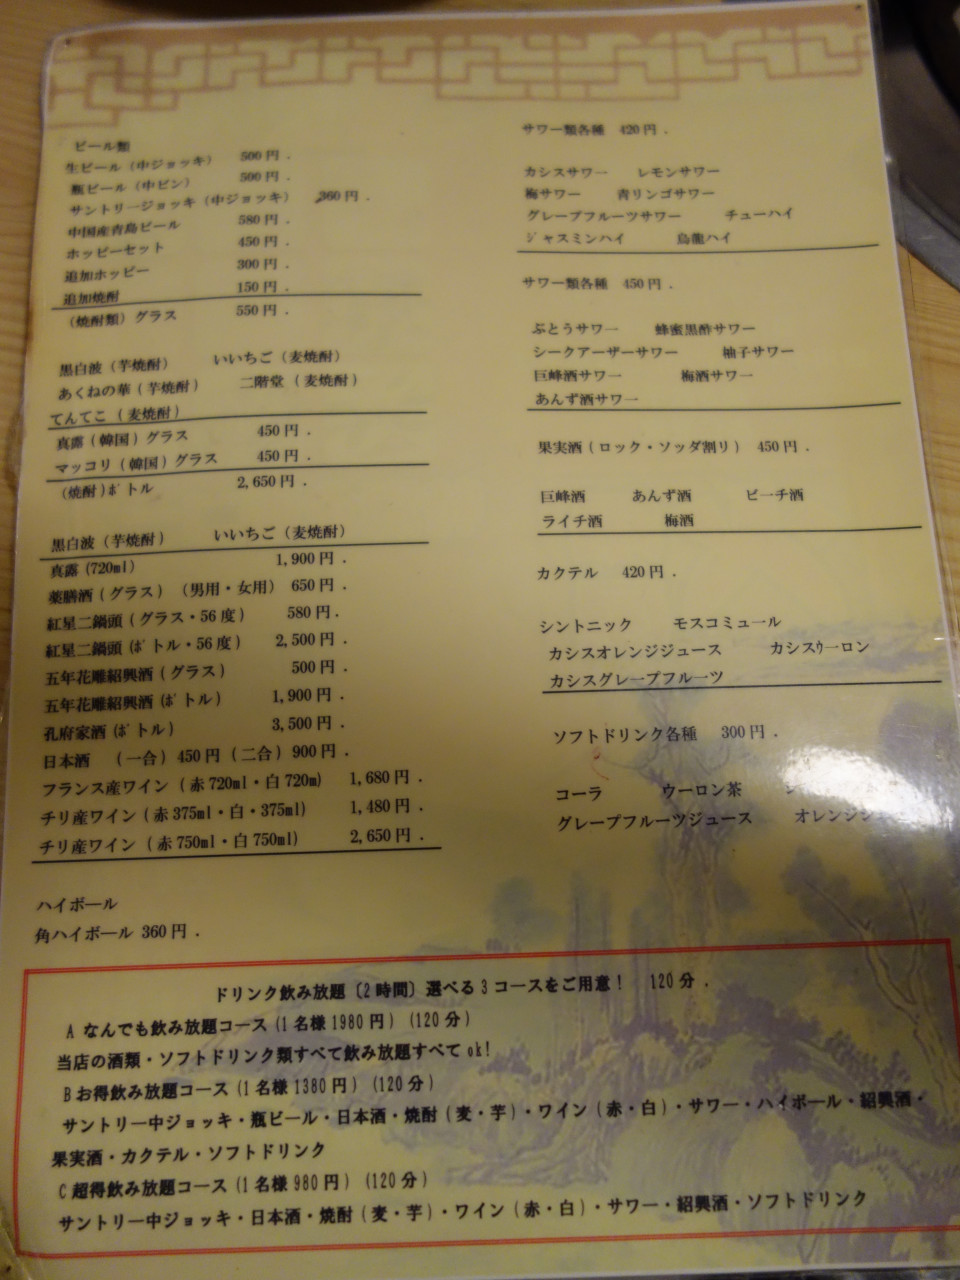 ビール類
生ビール（中ジョッキ） 500円．
瓶ビール（中ビン） 500円．
サントリージョッキ（中ジョッキ） 360円．
中国産青島ビール 580円．
ホッピーセット 450円．
追加ホッピー 300円．
追加焼酎 150円．
（焼酎類）グラス 550円．
黒白波（芋焼酎） いいちご（麦焼酎）
あくねの華（芋焼酎） 二階堂（麦焼酎）
てんてこ（麦焼酎）
真露（韓国）グラス 450円．
マッコリ（韓国）グラス 450円．
（焼酎）ﾎﾞトル 2,650円．
黒白波（芋焼酎） いいちご（麦焼酎）
真露（720ml） 1,900円．
薬膳酒（グラス）（男用・女用） 650円．
紅星二鍋頭（グラス・56度） 580円．
紅星二鍋頭（ﾎﾞトル・56度） 2,500円．
五年花雕紹興酒（グラス） 500円．
五年花雕紹興酒（ﾎﾞトル） 1,900円．
孔府家酒（ﾎﾞトル） 3,500円．
日本酒 （一合）450円（二合）900円．
フランス産ワイン（赤720ml・白720m） 1,680円．
チリ産ワイン（赤375ml・白・375ml） 1,480円．
チリ産ワイン（赤750ml・白750ml） 2,650円．
ハイボール
角ハイボール 360円．
サワー類各種 420円．
カシスサワー レモンサワー
梅サワー 青リンゴサワー
グレープフルーツサワー チューハイ
ジャスミンハイ 烏龍ハイ
サワー類各種 450円．
ぶとうサワー 蜂蜜黒酢サワー
シークアーザーサワー 柚子サワー
巨峰酒サワー 梅酒サワー
あんず酒サワー
果実酒（ロック・ソッダ割リ） 450円．
巨峰酒 あんず酒 ピーチ酒
ライチ酒 梅酒
カクテル 420円．
シントニック モスコミュール
カシスオレンジジュース カシスｳーロン
カシスグレープフルーツ
ソフトドリンク各種 300円．
コーラ ウーロン茶
グレープフルーツジュース オレンジジ
ドリンク飲み放題〔2時間〕選べる3コースをご用意！ 120分．
A なんでも飲み放題コース（1名様1980円）（120分）
当店の酒類・ソフトドリンク類すべて飲み放題すべてok!
Bお得飲み放題コース（1名様1380円）（120分）
サントリー中ジョッキ・瓶ビール・日本酒・焼酎（麦・芋）・ワイン（赤・白）・サワー・ハイボール・紹興酒・
果実酒・カクテル・ソフトドリンク
C超得飲み放題コース（1名様980円）（120分）
サントリー中ジョッキ・日本酒・焼酎（麦・芋）・ワイン（赤・白）・サワー・紹興酒・ソフトドリンク